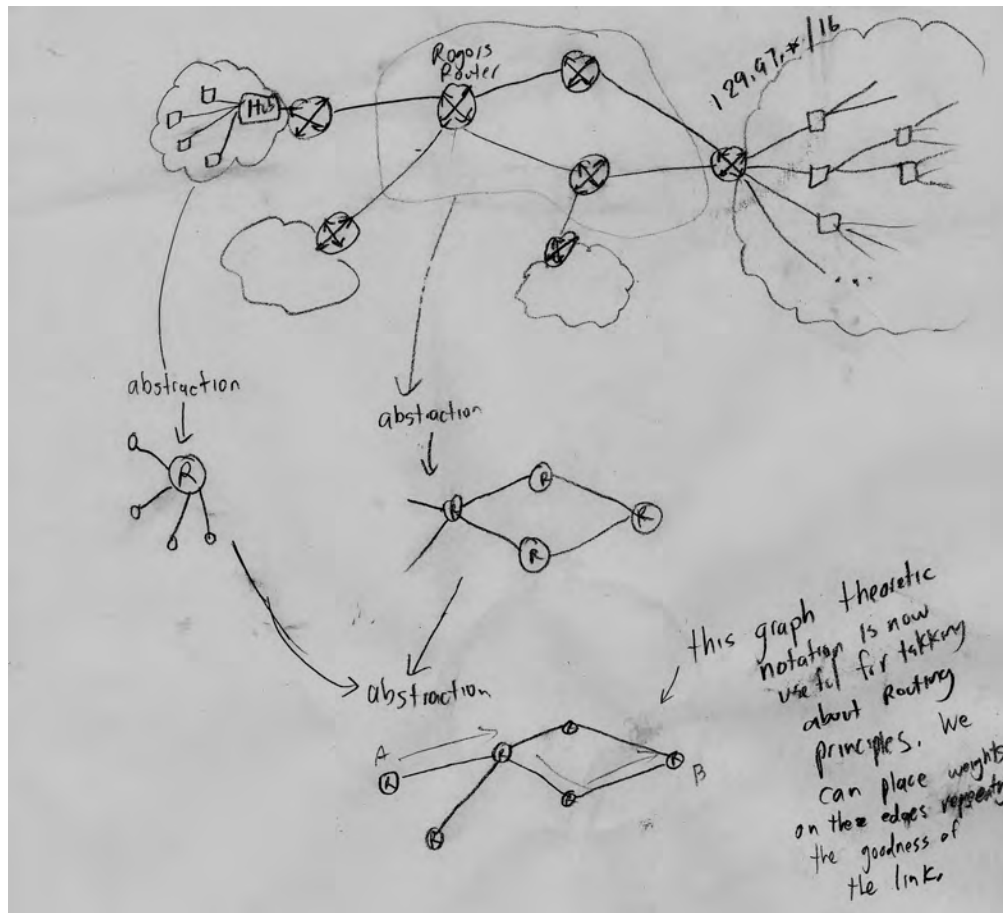 Rogors
Router
Hub
129.97.*/16
...
abstraction
abstaction
R
R
R
R
R
abstraction
this graph theoretic
notation is now
useful for takking
about Routing
principles. We
can place weights
on the edges
the goodness of
the link.
A
R
R
R
R
R
R
B